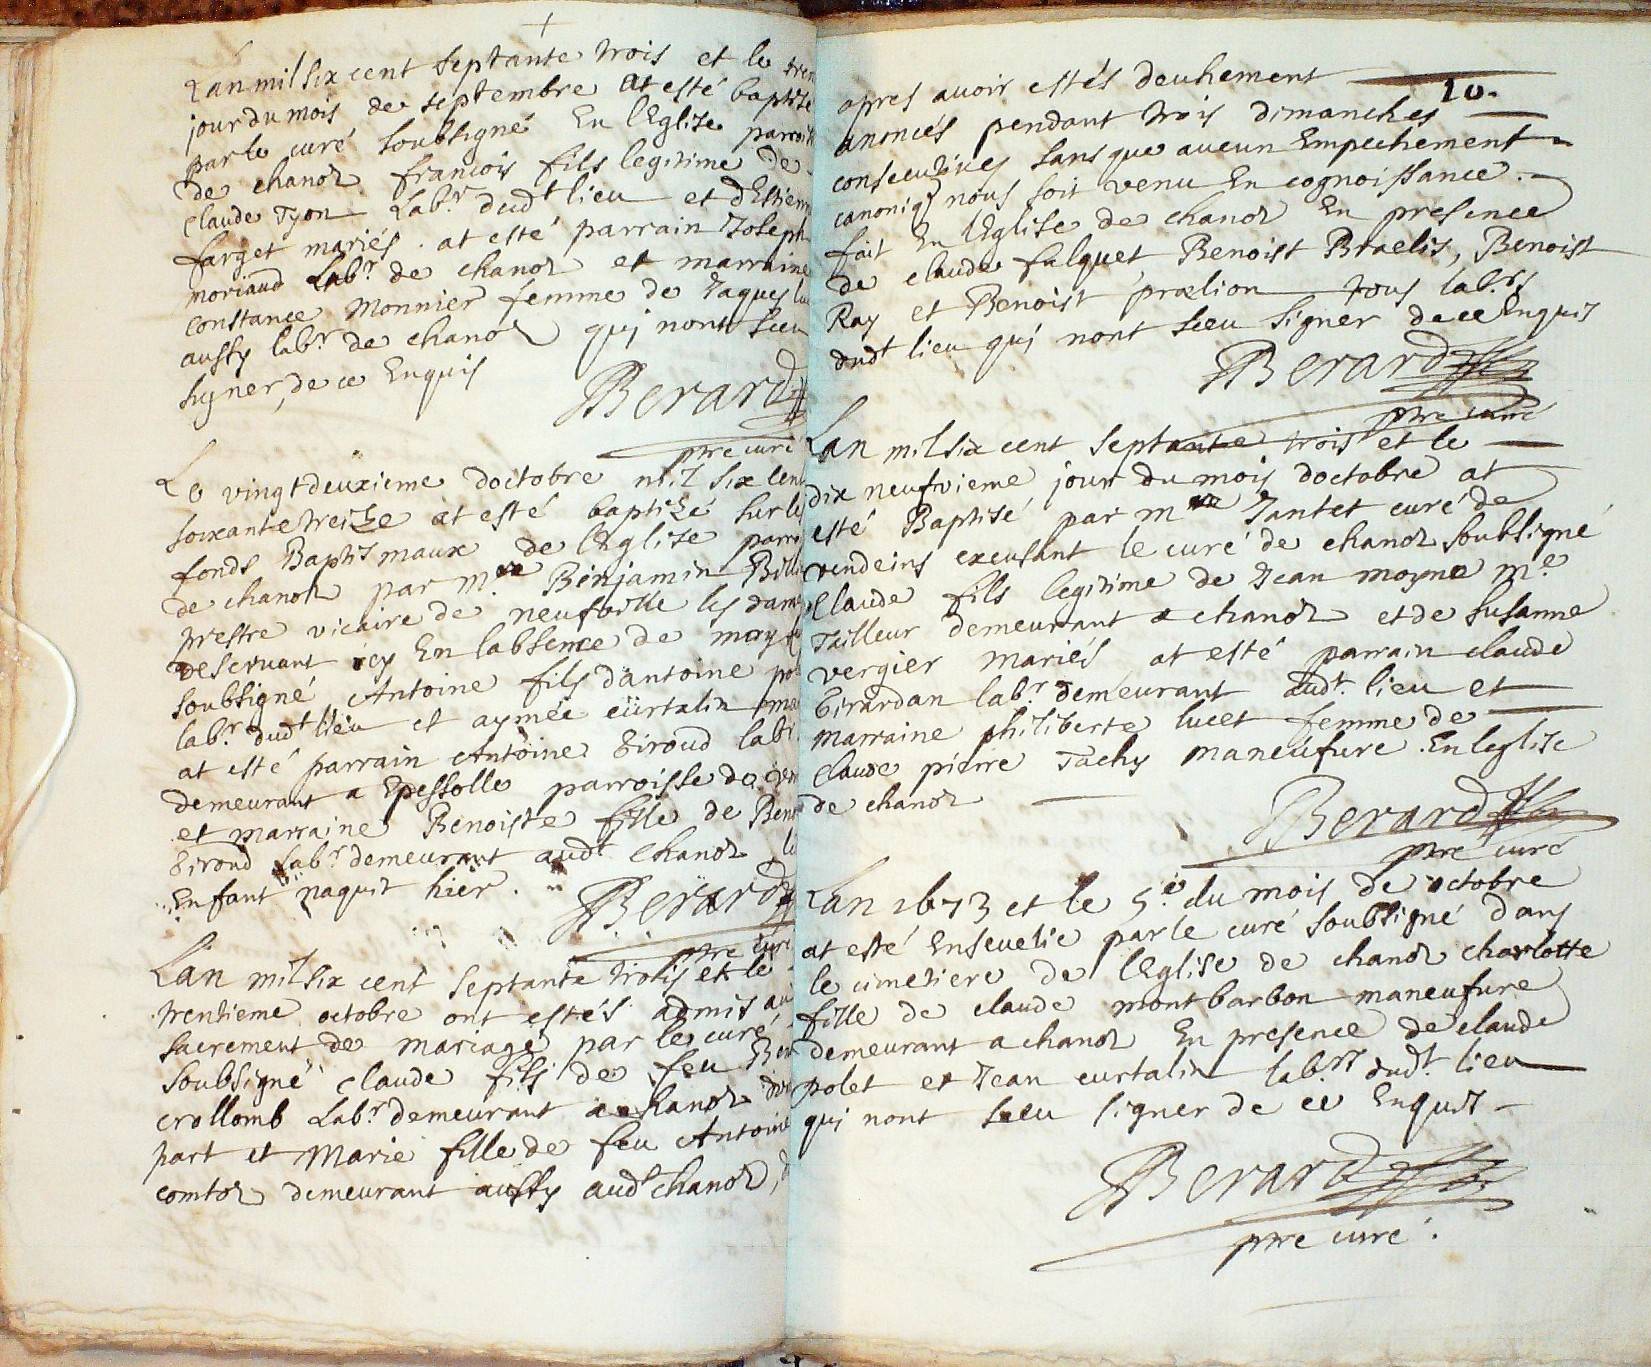 Lan mil six cent septante trois et le
jour du mois de septembre at esté baptize
par le curé soubsigné En lEglise
de chanoz francois fils legitime de
Claude Tyon Lab.r dud.t lieu et
farget mariés . at esté parrain Joseph
moriaud Lab.r de chanoz et marraine
constance Monnier femme de Jaques
aussy lab.r de chanoz qui nont sceu
signer, de ce Enquis
Berard
ptre curé
Le vingtdeuxieme doctobre mil six cent
soixante treize at esté baptizé sur les
fonds Baptismaux de lEglise
de chanoz par m.re Binjamin
prestre vicaire de neufville les dames
deservant icy En labsence de moy
soubsigné Antoine fils dantoine
lab.r dud.t lieu et aymée cürtalin
at esté parrain Antoine Giroud lab.r
demeurant a Epessolle parroisse de
et marraine Benoiste fille de
Giroud Lab.r demeurant aud.t Chanoz
Enfant naquit hier .
Berard
ptre curé
Lan mil six cent septante trois et le
trentieme octobre ont estés admis au
sacrement de mariage par le curé
soubsigné claude fils de feu
crollomb Lab.r demeurant a chanoz
part et Marie fille de feu Antoine
comtoz demeurant aussy aud.t chanoz,
apres avoir estés deuhement
20.
anoncés pendant trois dimanches
consecutives sans que aucun Empechement
canoniq; nous soit venu En cognoissance .
fait En lEglise de chanoz En presence
de claude falquet Benoist Braelis, Benoist
Ray et Benoist prælion tous lab.rs
dud.t lieu qui nont sceu signer de ce Enquis
Berard
ptre curé
Lan mil six cent septante trois et le
dix neufvieme jour du mois doctobre at
esté Baptisé par m.re Jantet curé de
vendeins excusant le curé de chanoz soubsigné
Claude fils legitime de Jean moyne m.e
Tailleur demeurant a chanoz et de susanne
vergier mariés at esté parrain claude
Girardan lab.r demeurant aud.t lieu et
marraine philiberte lucet femme de
Claude pierre Tachy maneufure . En leglise
de chanoz
Berard
ptre curé
Lan 1673 et le 5.e du mois de octobre
at esté Ensevelie par le curé soubsigné dans
le cimetiere de lEglise de chanoz charlotte
fille de claude montbarbon maneufure
demeurant a chanoz En presence de claude
polet et Jean curtalin lab.rs dud.t lieu
qui nont sceu signer de ce Enquis
Berard
ptre curé .